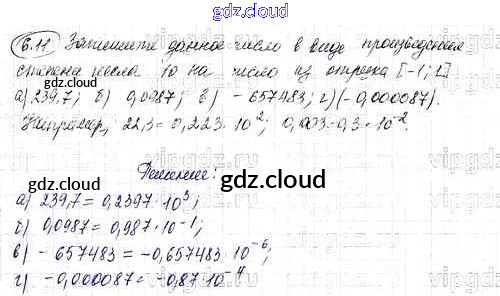 gdz.cloud
6.11 Запишите данное число в виде произведения
степени числа 10 на число из отрезка [-1; 1]
а) 239,7; б) 0,0987; в) - 657483; г) (-0,000087).
Например, 22,3 = 0,223 · 10^2; 0,003 = 0,3 · 10^-2.
Решение:
gdz.cloud
gdz.cloud
а) 239,7 = 0,2397 · 10^3;
б) 0,0987 = 0,987 · 10^-1;
в) - 657483 = -0,657483 · 10^-6;
г) -0,000087 = -0,87 · 10^-4
gdz.cloud